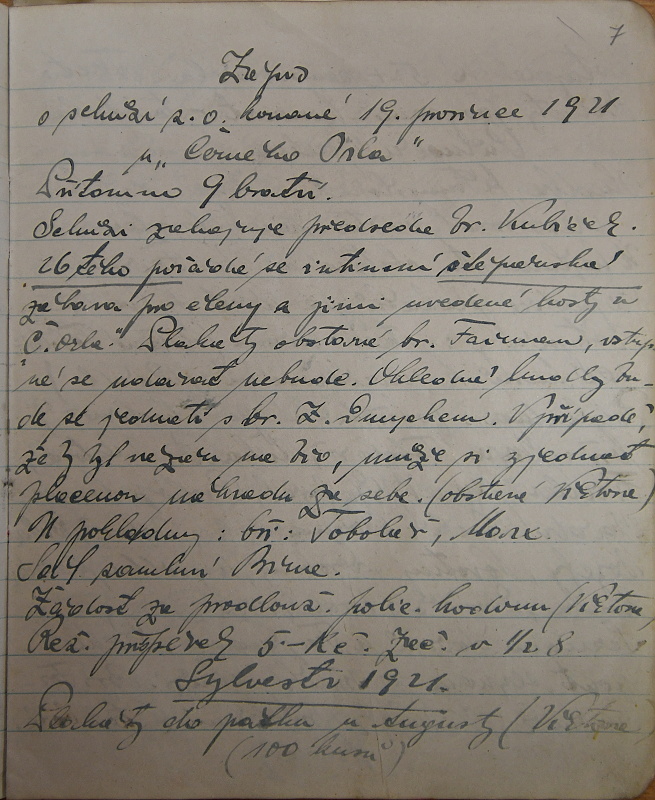 7
Zápis
o schůzi z. o. konané 19. prosince 1921
u „Černého Orla“
Přítomno 9 bratří.
Schůzi zahajuje předseda br. Kubíček.
26 tého pořádá se intimní štěpánská
zábava pro členy a jimi uvedené hosty u
„Č. Orla.“ Plakáty obstará br. Faiman, vstup-
né se udávat nebude. Ohledně hudby bu-
de se jednati s br. Z. Dmychem. V případě,
že by byl vázán na bio, může si zjednat
placenou náhradu za sebe. (obstará Květoně)
U pokladny: bři: Tobolář, Marx.
Sál zamluví
Žádost za prodlouž. polic. hodinu (Květoně)
Rež. příspěvek 5.- Kč. Zač. v 1/2 8
Sylvestr 1921.
Plakáty do pátku u Augusty (Květoně)
(100 kusů)